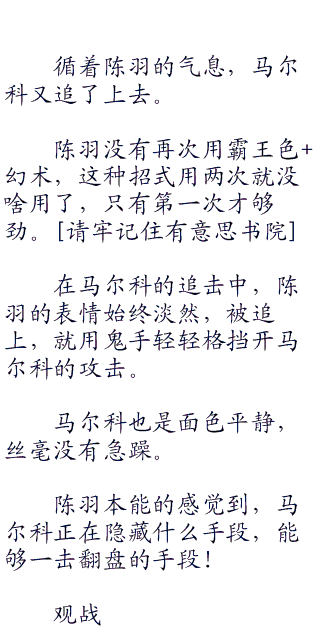 循着陈羽的气息，马尔
科又追了上去。
陈羽没有再次用霸王色+
幻术，这种招式用两次就没
啥用了，只有第一次才够
劲。[请牢记住有意思书院]
在马尔科的追击中，陈
羽的表情始终淡然，被追
上，就用鬼手轻轻格挡开马
尔科的攻击。
马尔科也是面色平静，
丝毫没有急躁。
陈羽本能的感觉到，马
尔科正在隐藏什么手段，能
够一击翻盘的手段！
观战